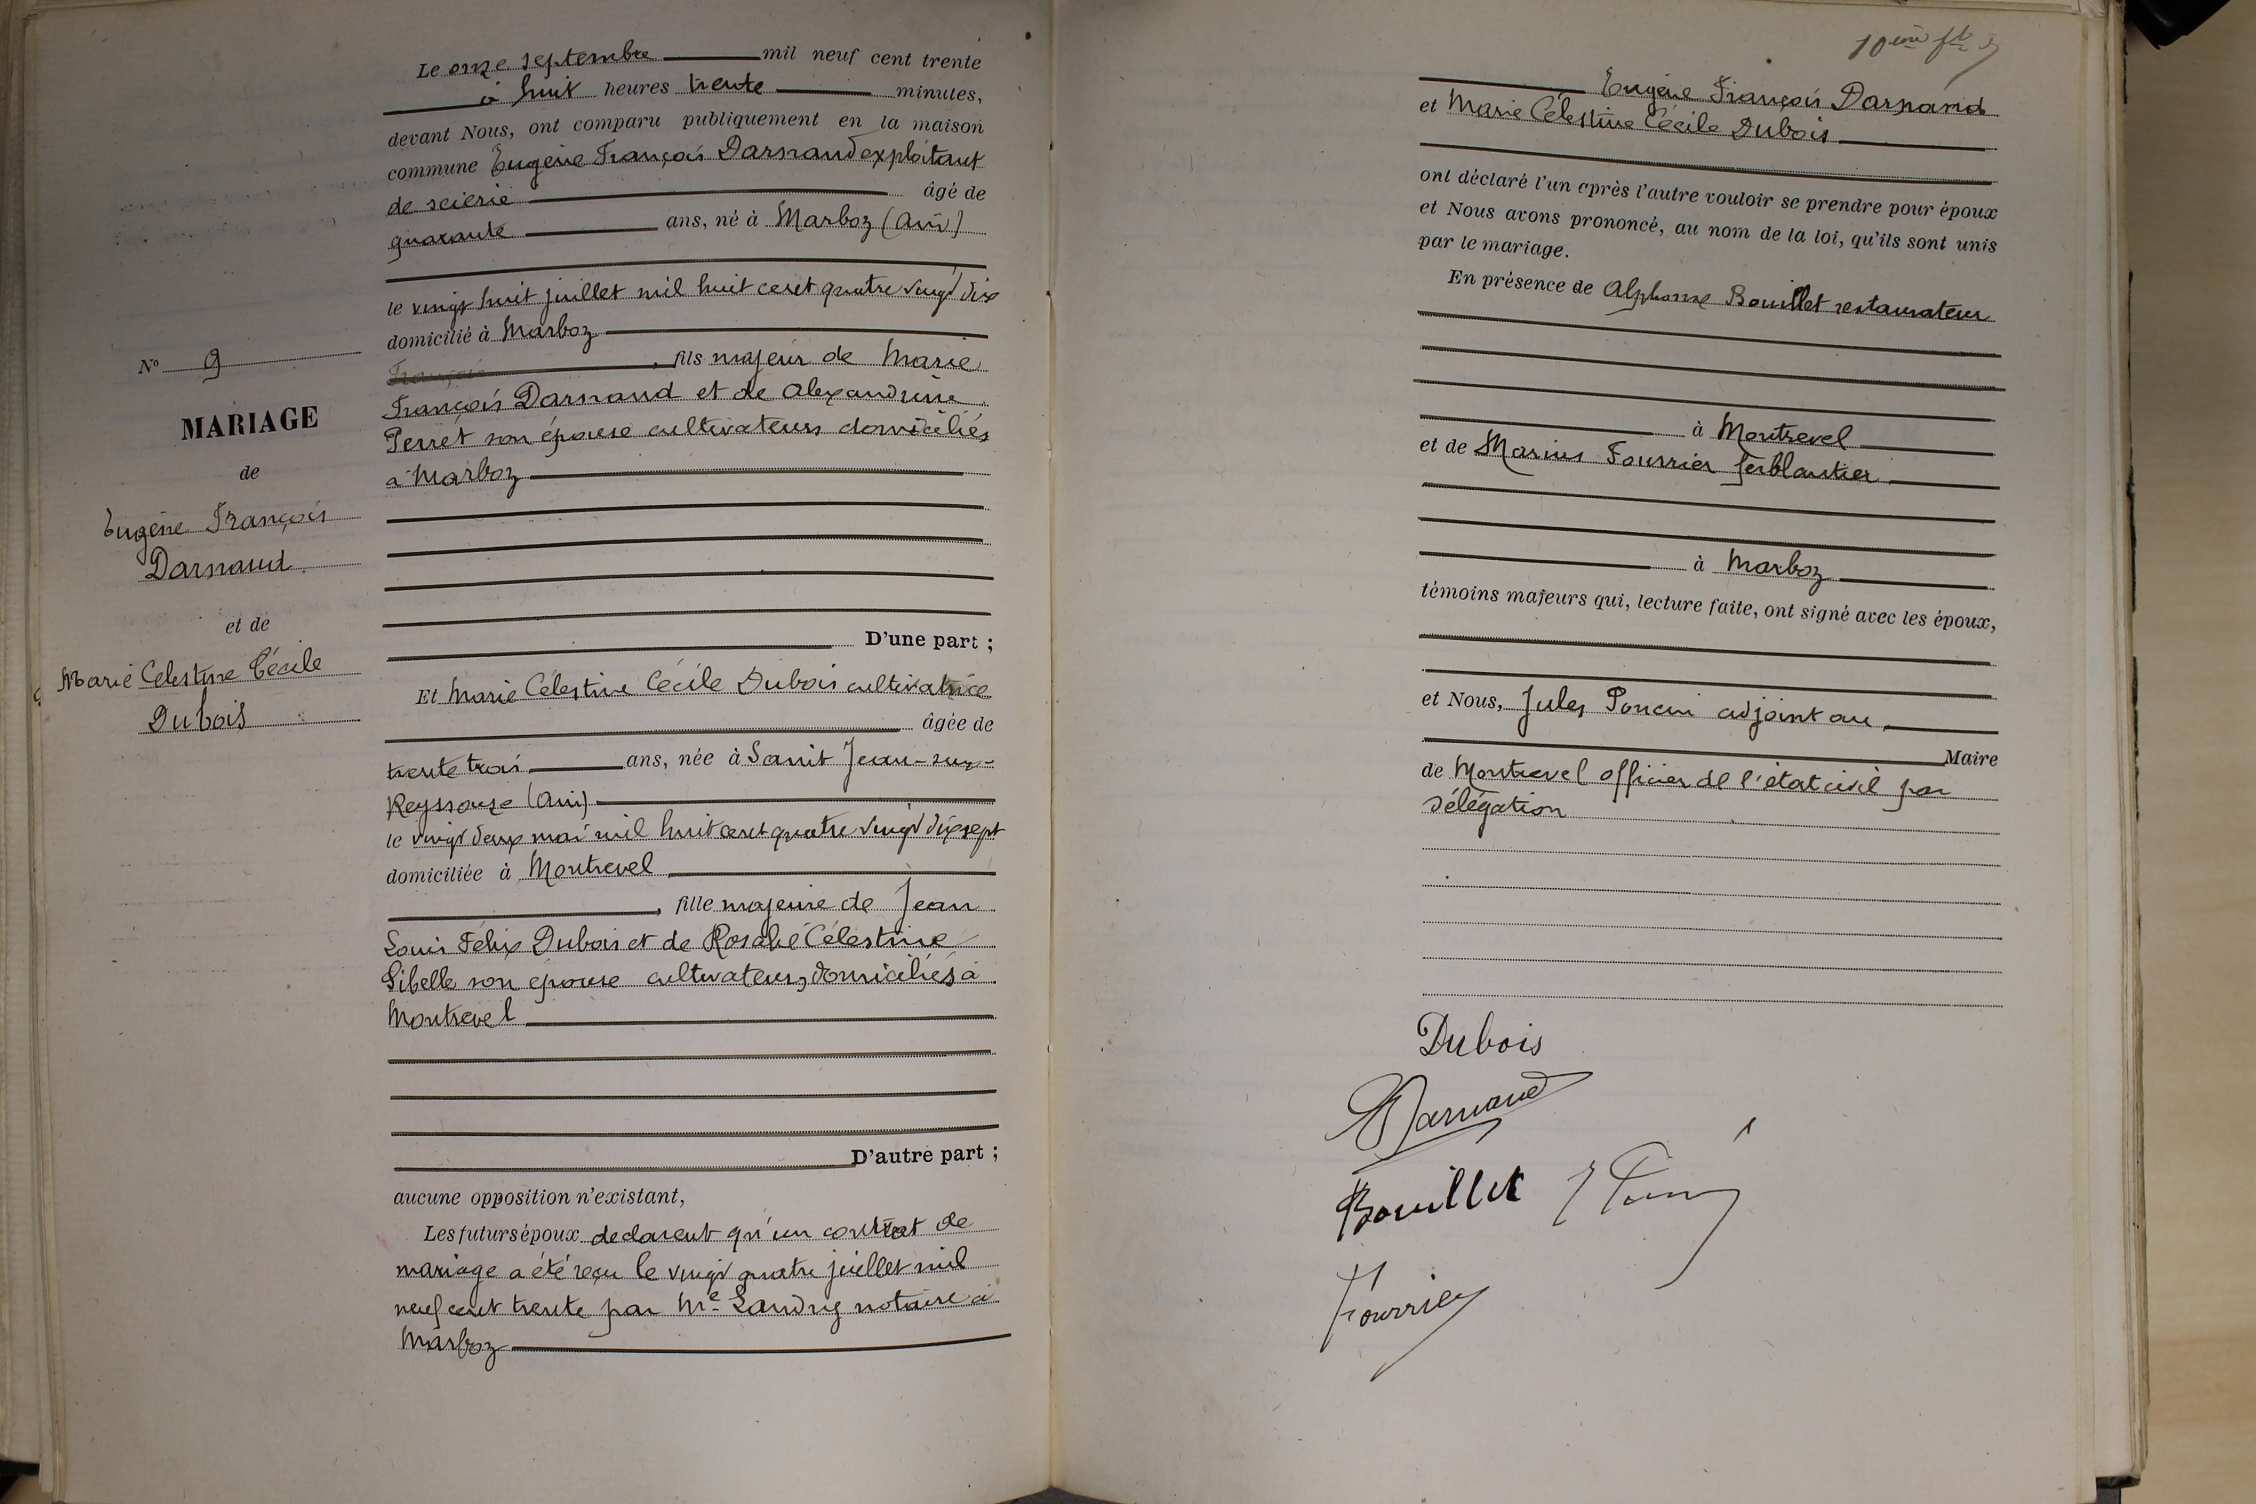 Le onze septembre mil neuf cent trente
à huit heures trente minutes,
devant Nous, ont comparu publiquement en la maison
commune Eugène François Darnaud exploitant
de scierie âgé de
quarante ans, né à Marboz (Ain)
le vingt huit juillet mil huit cent quatre vingt dix
domicilié à Marboz
François, fils majeur de Marie
François Darnaud et de Alexandrine
Perret son épouse cultivateurs domiciliés
à Marboz
N° 9
MARIAGE
de
Eugène François
Darnaud
et de
Marie Célestine Cécile
Dubois
D'une part ;
Et Marie Célestine Cécile Dubois cultivatrice
âgée de
trente trois ans, née à Saint Jean-sur-
Reyssouze (Ain)
le vingt deux mai mil huit cent quatre vingt dix sept
domiciliée à Montrevel
, fille majeure de Jean
Louis Félix Dubois et de Rosalie Célestine
Sibelle son épouse cultivateurs, domiciliés à
Montrevel
D'autre part ;
aucune opposition n'existant,
Les futurs époux declarent qu'un contrat de
mariage a été reçu le vingt quatre juillet mil
neuf cent trente par Me Landry notaire à
Marboz
10ème
Eugène François Darnaud
et Marie Célestine Cécile Dubois
ont déclaré l'un après l'autre vouloir se prendre pour époux
et Nous avons prononcé, au nom de la loi, qu'ils sont unis
par le mariage.
En présence de Alphonse Bouillet restaurateur
à Montrevel
et de Marius Fourrier ferblantier
à Marboz
témoins majeurs qui, lecture faite, ont signé avec les époux,
et Nous, Jules Poncin adjoint au
Maire
de Montrevel officier de l'état civil par
délégation
Dubois
Darnaud
Bouillet
Fourrier